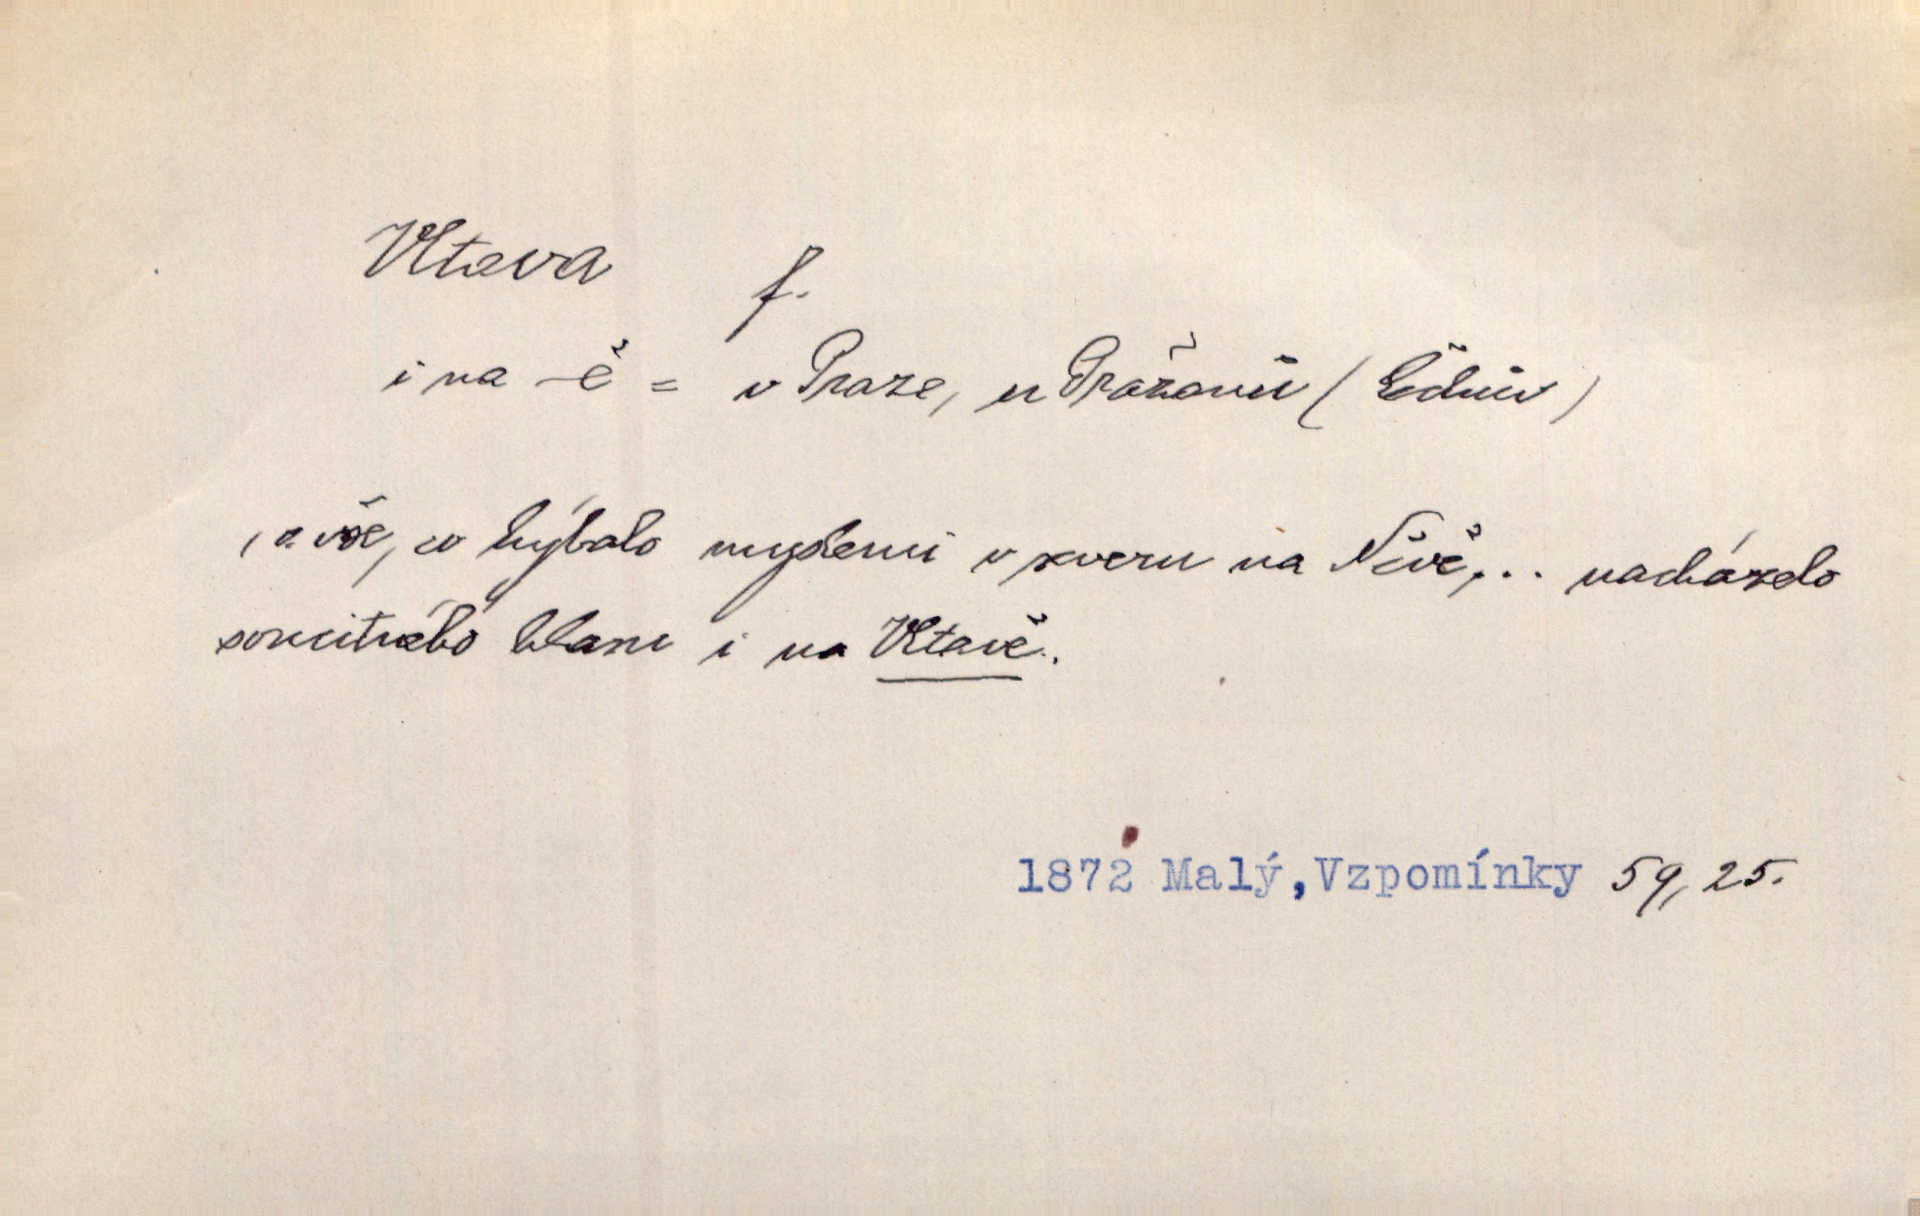 Vltava f.
i na -ě = v Praze, u Pražanů (Čechův)
, a vše, co hýbalo myslemi v severu na Něvě,... nacházelo
soucitného hlasu i na Vltavě.
1872 Malý, Vzpomínky 59, 25.